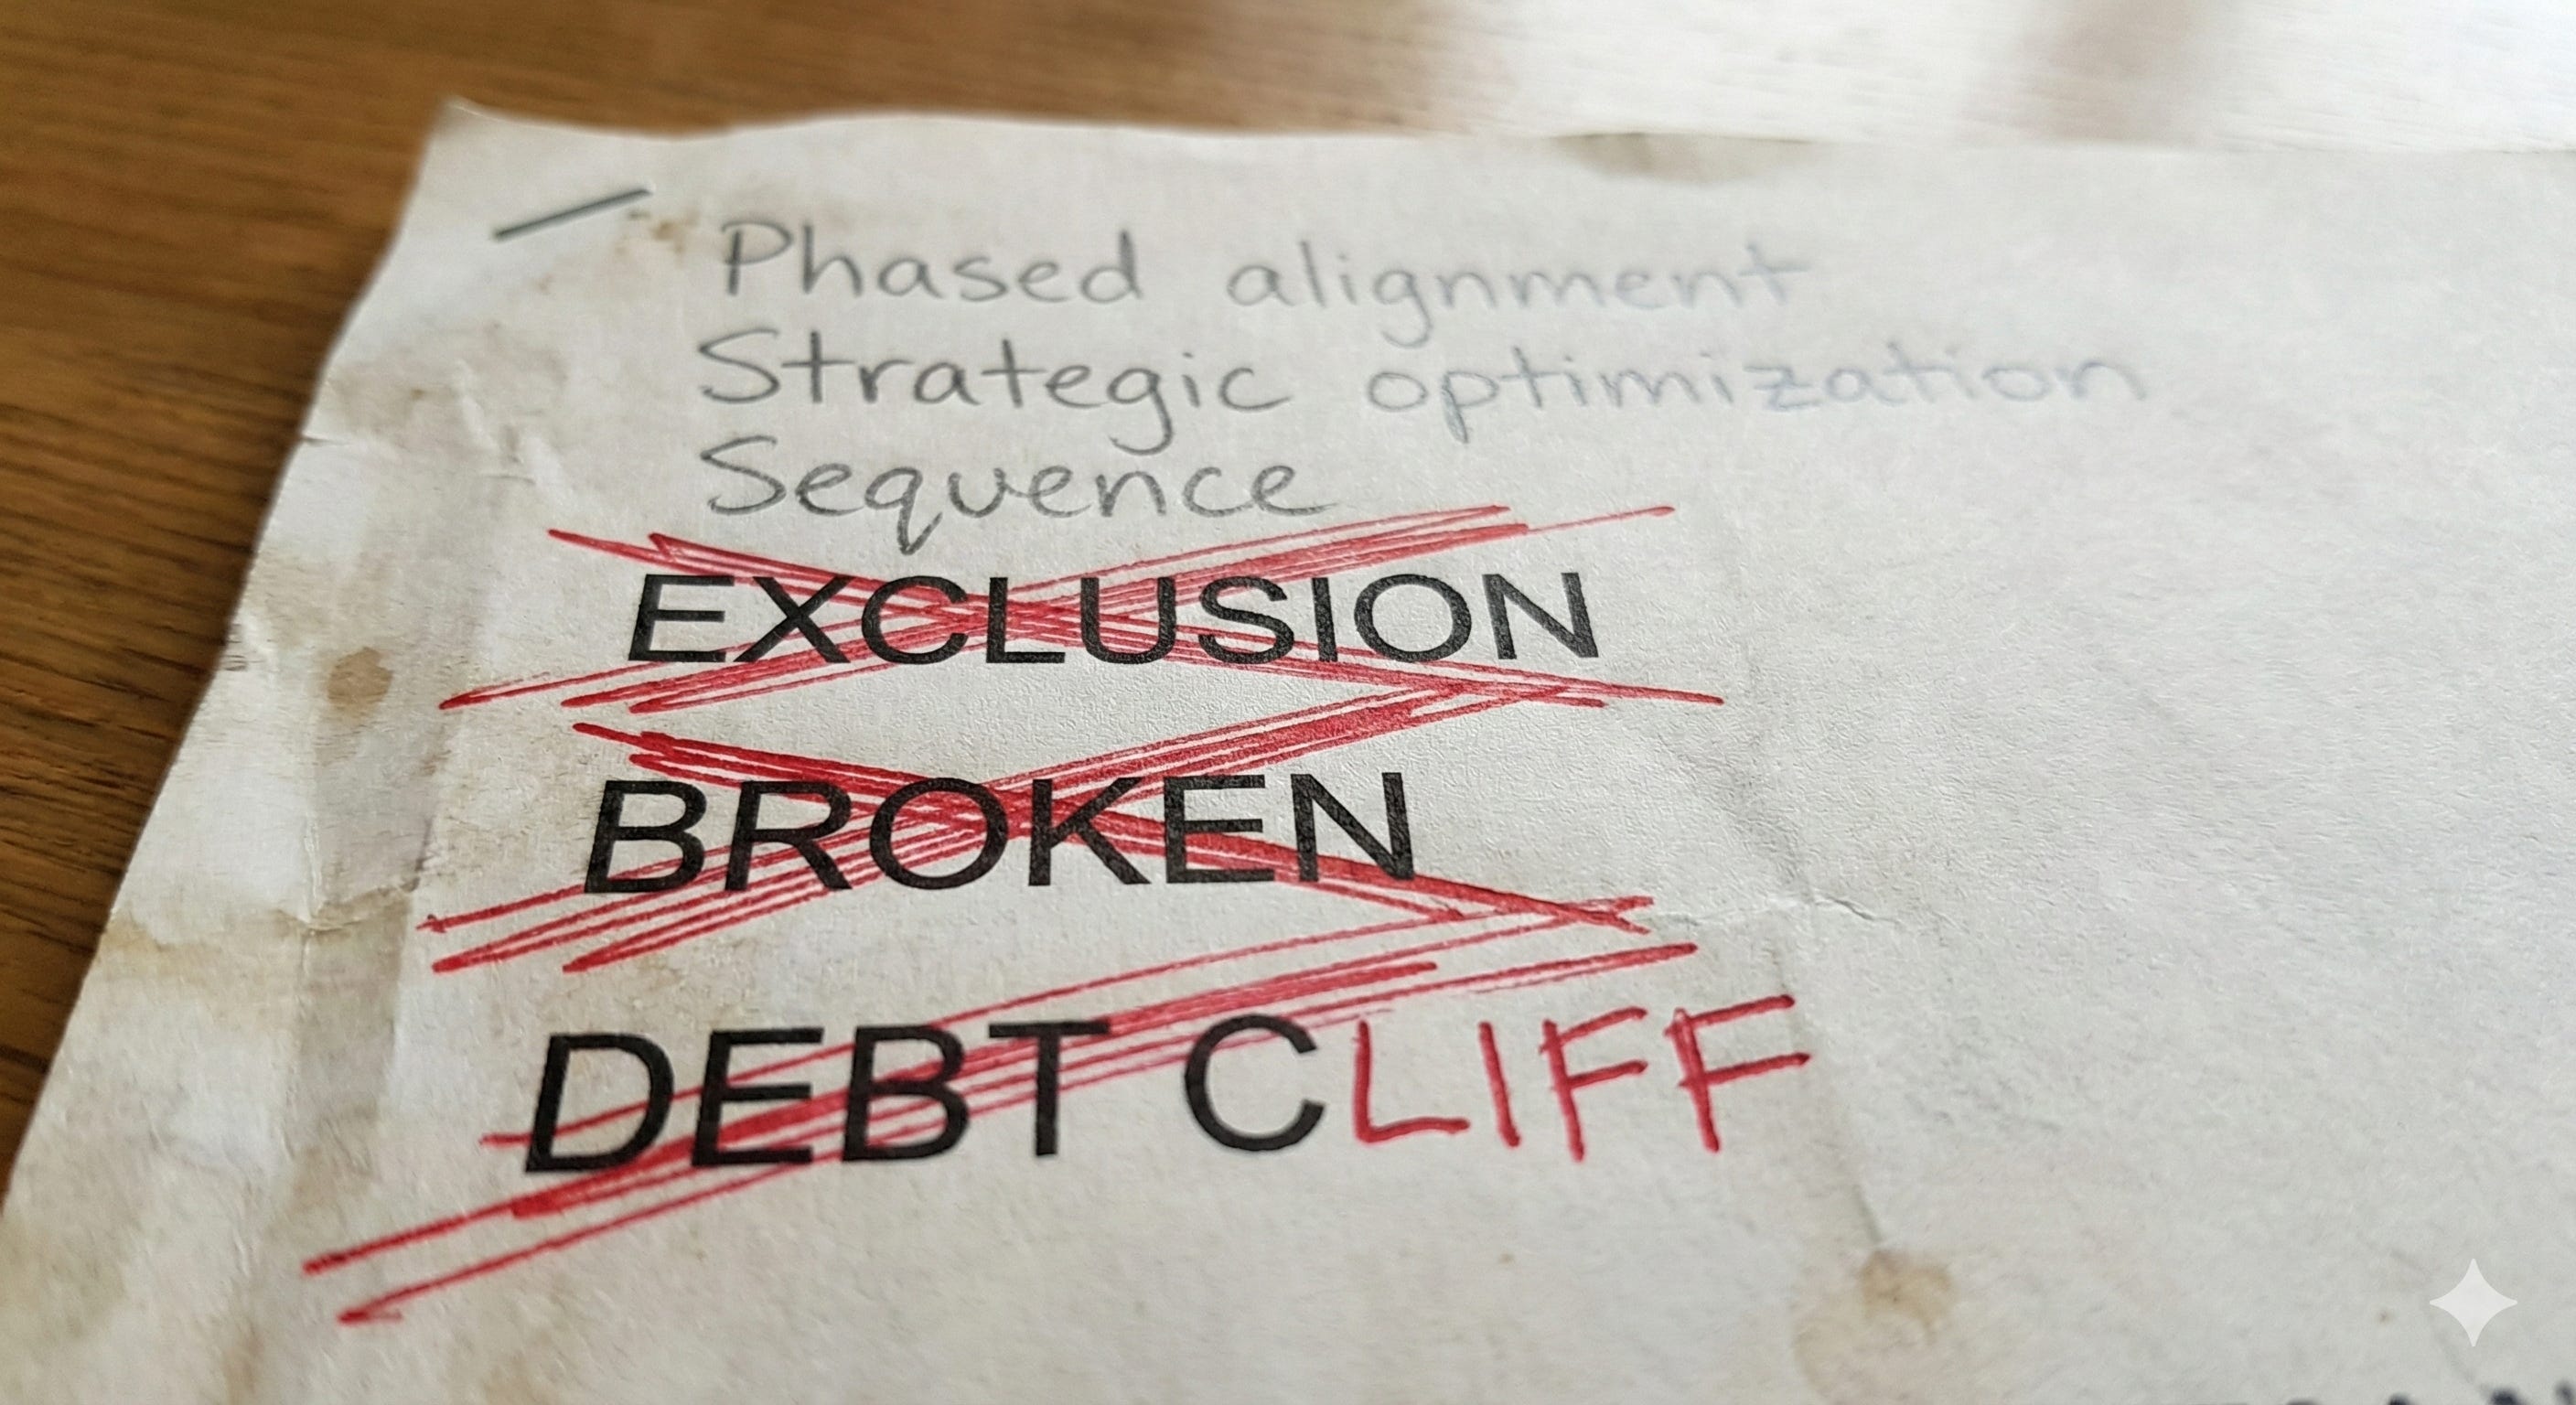 Phased alignment
Strategic optimization
Sequence
EXCLUSION
BROKEN
DEBT CLIFF